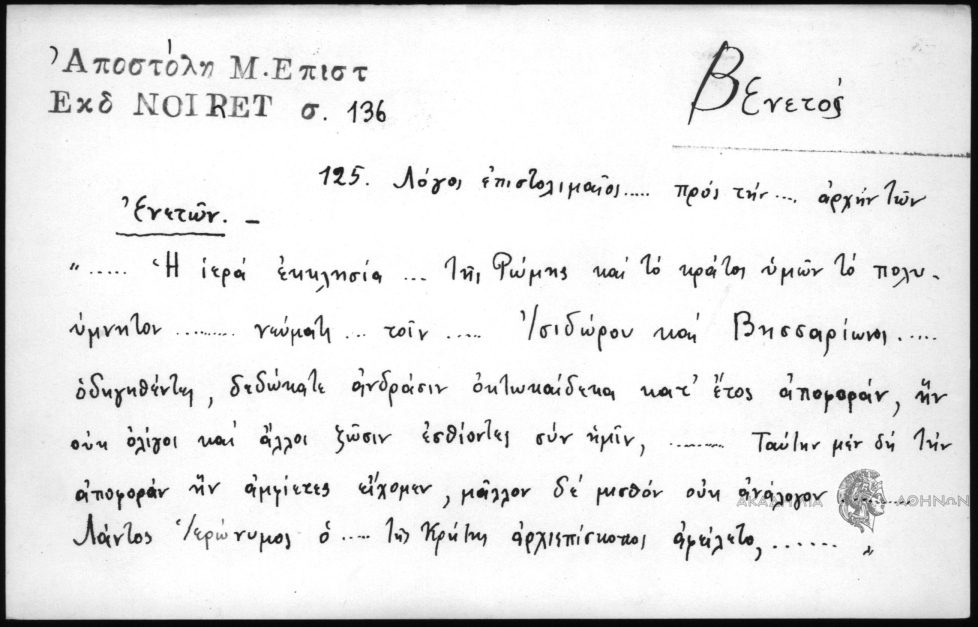 Ἀποστόλη Μ. Επιστ
Εκδ NOIRET σ. 136
Βενετός
125. Λόγος ἐπιστολιμαῖος..... πρός τήν .... ἀρχήν τῶν
Ἐνετῶν. –
"..... Ἡ ἱερά ἐκκλησία ... τῆς Ρώμης καί τό κράτος ὑμῶν τό πολυ-
ύμνητον ......... νεύματι ... τοῖν ..... Ἰσιδώρου καί Βησσαρίωνος .....
ὁδηγηθέντες, δεδώκατε ἀνδράσιν ὀκτωκαίδεκα κατ' ἔτος ἀποφοράν, ἥν
οὐκ ὀλίγοι καί ἄλλοι ζῶσιν ἐσθίοντες σύν ἡμῖν, ......... Ταύτην μέν δή τήν
ἀποφοράν ἥν ἀμφίετες εἴχομεν, μᾶλλον δέ μισθόν οὐκ ἀνάλογον .........
Λάντος Ἱερώνυμος ὁ ..... τῆς Κρήτης ἀρχιεπίσκοπος ἀφείλετο, ....... "
ΑΚΑΔΗΜΙΑ ΑΘΗΝΩΝ